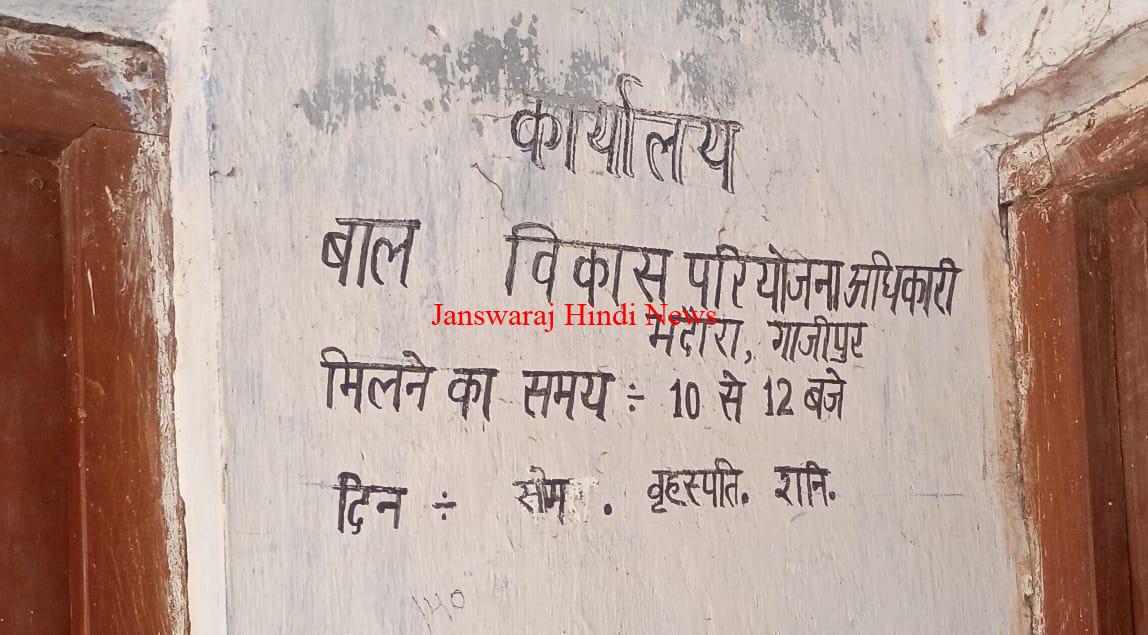 कार्यालय
बाल विकास परियोजना अधिकारी
Janswaraj Hindi News
भदौरा, गाजीपुर
मिलने का समय ÷ 10 से 12 बजे
दिन ÷ सोम . वृहस्पति. शनि.